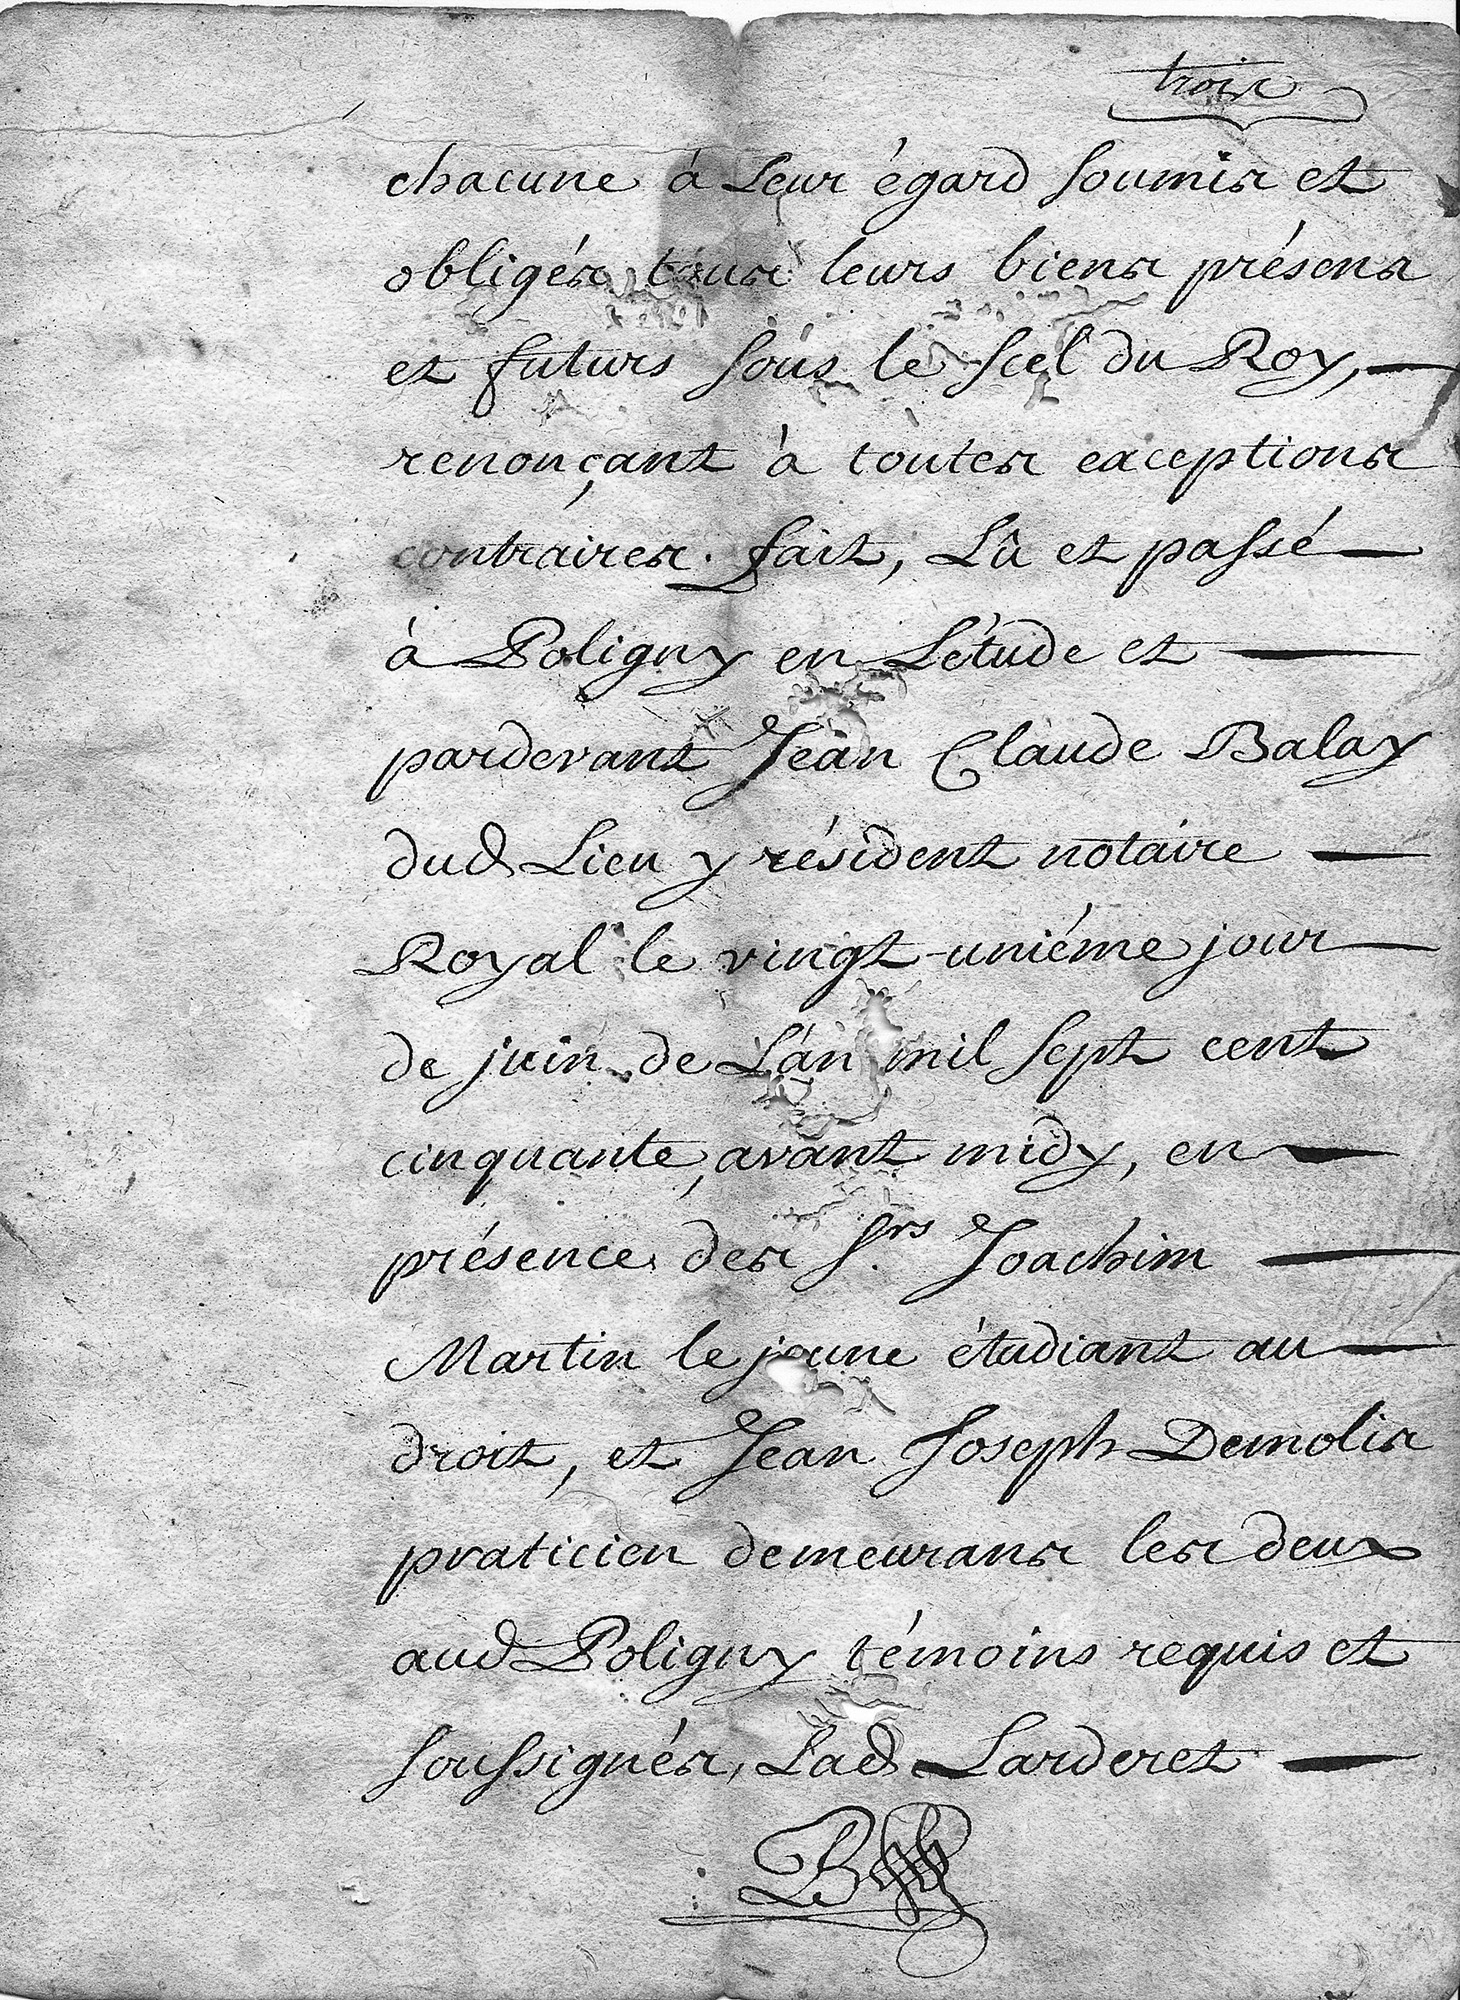 trois
chacune à Leur égard soumis et
obligés tous leurs biens présens
et futurs sous le scel du Roy,
renonçant à toutes exceptions
contraires. fait, Lû et passé
à Poligny en L'étude et
pardevant Jean Claude Balay
dud Lieu y résident notaire
Royal le vingt-uniéme jour
de juin de L'an mil sept cent
cinquante, avant midy, en
présence des Srs. Joachim
Martin le jeune étudiant au
droit, et Jean Joseph Demolis
praticien demeurans les deux
aud Poligny témoins requis et
soussignés, Lad Larderet